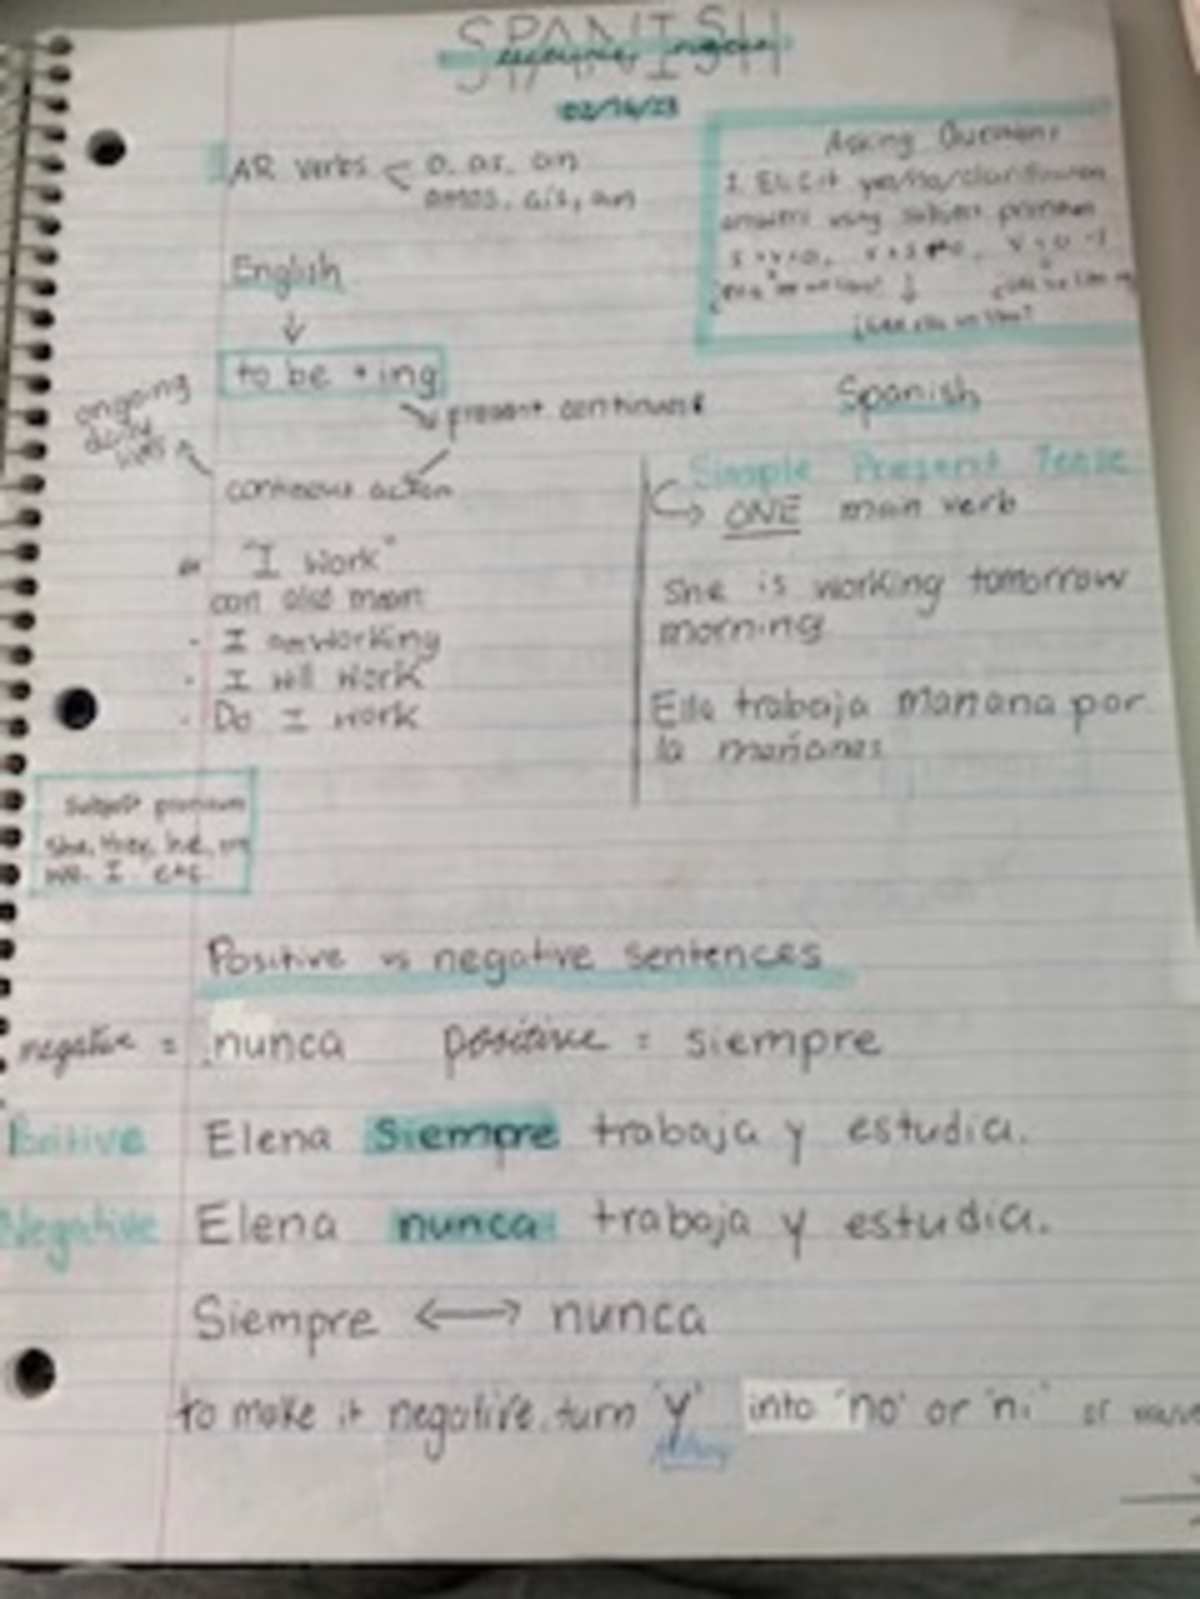 SPANISH
02/16/23
AR verbs < o, as, an
amos, ais, an
English
to be + ing
ongoing
daily
present continuous
continous action
"I work"
can also mean
- I am working
- I will work
- Do I work
Subject pronoun
she, they, he,
we, I etc
Asking Questions
1. Elicit yes/no/clarification
answers using subject pronoun
Spanish
Simple Present Tense
ONE main verb
She is working tomorrow
morning
Ella trabaja manana por
la mañanas
Positive vs negative sentences
negative = nunca positive = siempre
Positive Elena Siempre trabaja y estudia.
Negative Elena nunca trabaja y estudia.
Siempre <--> nunca
to make it negative, turn 'y' into 'no' or 'ni'